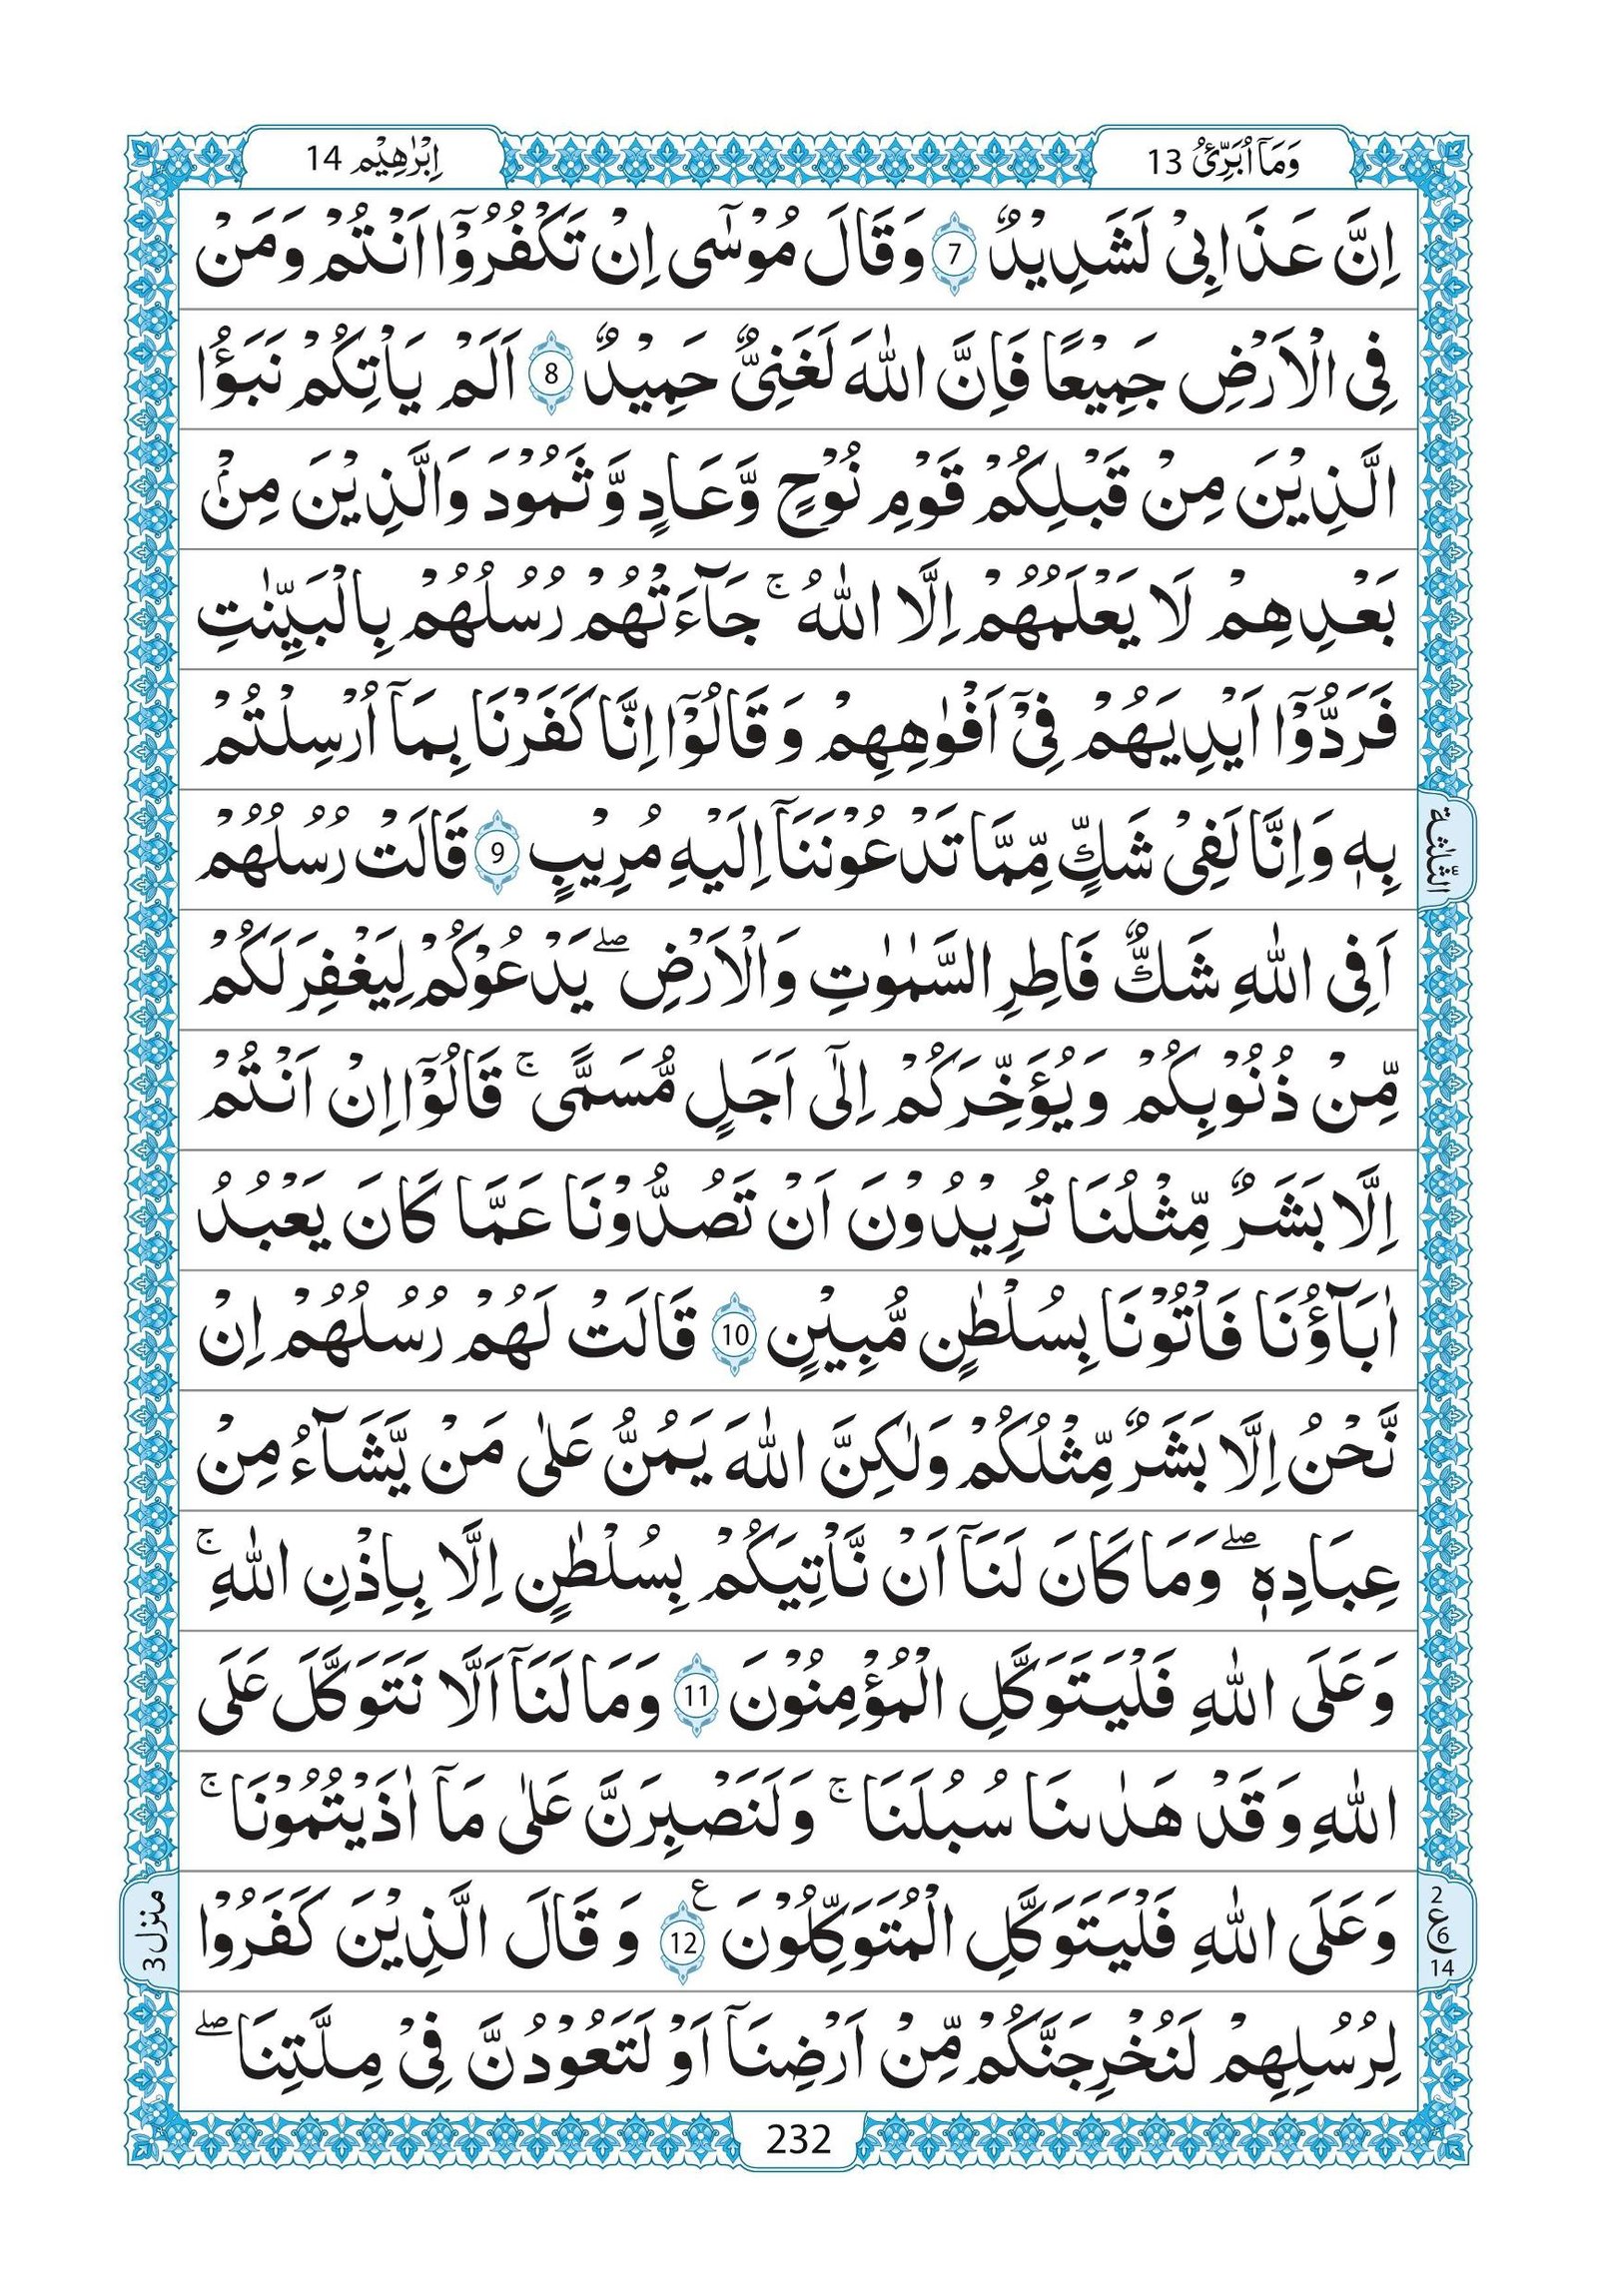 وَمَاۤ اُبَرِّئُ 13
اِبْرٰهِيْم 14
اِنَّ عَذَابِىْ لَشَدِيْدٌ 7 وَقَالَ مُوْسٰٓى اِنْ تَكْفُرُوْٓا اَنْتُمْ وَمَنْ
فِى الْاَرْضِ جَمِيْعًا فَاِنَّ اللّٰهَ لَغَنِىٌّ حَمِيْدٌ 8 اَلَمْ يَاْتِكُمْ نَبَؤُا
الَّذِيْنَ مِنْ قَبْلِكُمْ قَوْمِ نُوْحٍ وَّعَادٍ وَّثَمُوْدَ وَالَّذِيْنَ مِنْۢ
بَعْدِهِمْ لَا يَعْلَمُهُمْ اِلَّا اللّٰهُ ۚ جَآءَتْهُمْ رُسُلُهُمْ بِالْبَيِّنٰتِ
فَرَدُّوْٓا اَيْدِيَهُمْ فِىْٓ اَفْوٰهِهِمْ وَقَالُوْٓا اِنَّا كَفَرْنَا بِمَآ اُرْسِلْتُمْ
بِهٖ وَاِنَّا لَفِىْ شَكٍّ مِّمَّا تَدْعُوْنَنَآ اِلَيْهِ مُرِيْبٍ 9 قَالَتْ رُسُلُهُمْ
الثلٰثة
اَفِى اللّٰهِ شَكٌّ فَاطِرِ السَّمٰوٰتِ وَالْاَرْضِ ۖ يَدْعُوْكُمْ لِيَغْفِرَ لَكُمْ
مِّنْ ذُنُوْبِكُمْ وَيُؤَخِّرَكُمْ اِلٰٓى اَجَلٍ مُّسَمًّى ۚ قَالُوْٓا اِنْ اَنْتُمْ
اِلَّا بَشَرٌ مِّثْلُنَا تُرِيْدُوْنَ اَنْ تَصُدُّوْنَا عَمَّا كَانَ يَعْبُدُ
اٰبَآؤُنَا فَاْتُوْنَا بِسُلْطٰنٍ مُّبِيْنٍ 10 قَالَتْ لَهُمْ رُسُلُهُمْ اِنْ
نَّحْنُ اِلَّا بَشَرٌ مِّثْلُكُمْ وَلٰكِنَّ اللّٰهَ يَمُنُّ عَلٰى مَنْ يَّشَآءُ مِنْ
عِبَادِهٖ ۖ وَمَا كَانَ لَنَآ اَنْ نَّاْتِيَكُمْ بِسُلْطٰنٍ اِلَّا بِاِذْنِ اللّٰهِ ۚ
وَعَلَى اللّٰهِ فَلْيَتَوَكَّلِ الْمُؤْمِنُوْنَ 11 وَمَا لَنَآ اَلَّا نَتَوَكَّلَ عَلَى
اللّٰهِ وَقَدْ هَدٰىنَا سُبُلَنَا ۚ وَلَنَصْبِرَنَّ عَلٰى مَآ اٰذَيْتُمُوْنَا ۚ
وَعَلَى اللّٰهِ فَلْيَتَوَكَّلِ الْمُتَوَكِّلُوْنَ ع 12 وَقَالَ الَّذِيْنَ كَفَرُوْا
2
ع 6
14
منزل 3
لِرُسُلِهِمْ لَنُخْرِجَنَّكُمْ مِّنْ اَرْضِنَآ اَوْ لَتَعُوْدُنَّ فِىْ مِلَّتِنَا ۖ
232